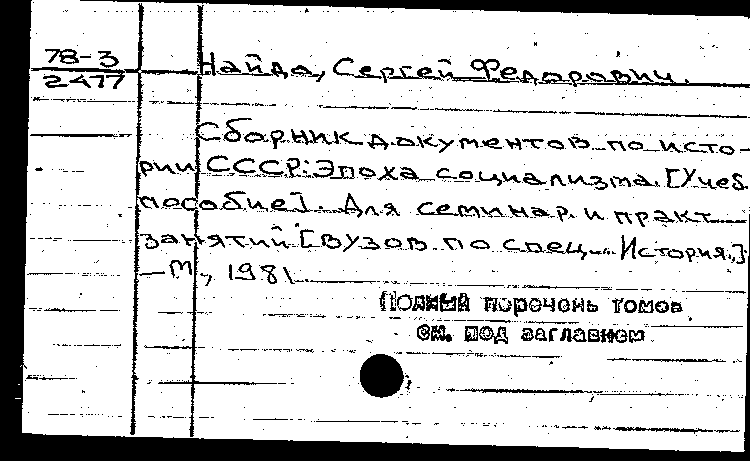 78-3
2477
Найда, Сергей Федорович.
Сборник документов по исто-
рии СССР: Эпоха социализма. [Учеб.
пособие]. Для семинар. и практ.
занятий [вузов по спец. „История„]
— М., 1981
Полный перечень томов
см. под заглавием